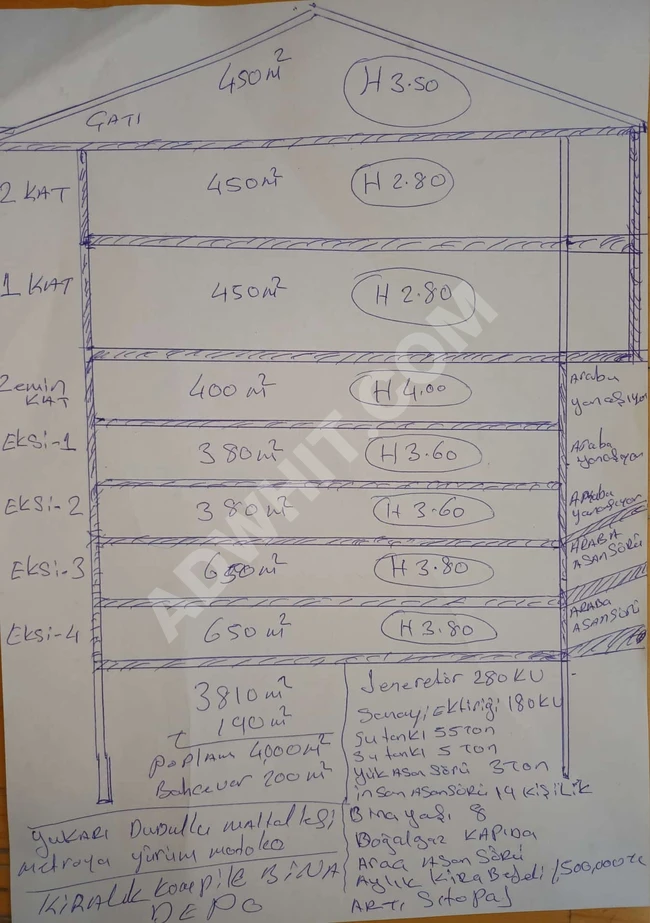 450 m² H 3.50
ÇATI
2 KAT 450 m² H 2.80
1 KAT 450 m² H 2.80
Zemin KAT 400 m² H 4.00 Araba yanaşıyor
EKSi-1 380 m² H 3.60 Araba yanaşıyor
EKSi-2 380 m² H 3.60 Araba yanaşıyor
EKSi-3 650 m² H 3.80 ARABA ASANSÖRÜ
EKSi-4 650 m² H 3.80 ARABA ASANSÖRÜ
3810 m²
190 m²
Toplam 4,000 m²
Bahçe var 200 m²
Jeneratör 280 KU
Sanayi Ektiriği 180 KU
Su tankı 55 Ton
Su tankı 5 Ton
Yük Asansörü 3 Ton
insan Asansörü 14 KiŞiLiK
Bina yaşı 8
Doğalgaz KAPIDA
Araç Asansörü
Aylık Kira Bedeli 1,500,000 TL
ARTI Stopaj
YUKARI Dudullu mahallesi
metroya yürüm modoko
KiRALIK KomPiLE BiNA
DEPO
ADWHIT.COM